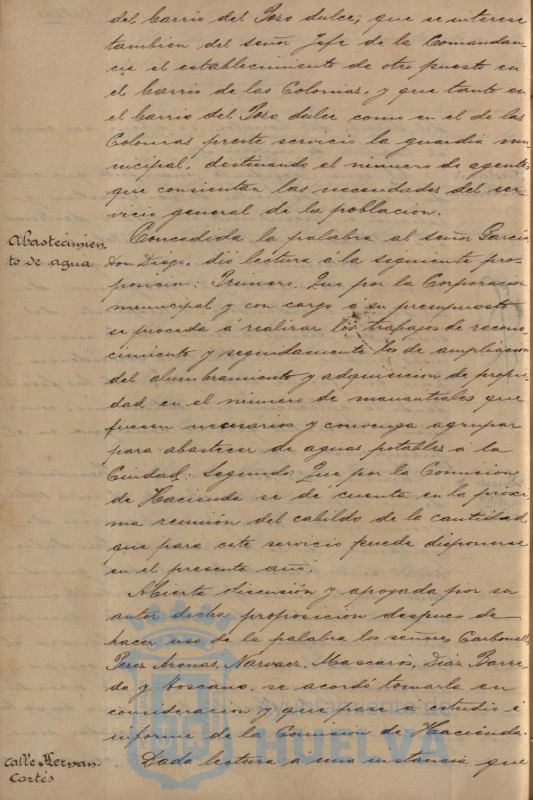 del barrio del Pozo dulce; que se interese
tambien del señor Jefe de la Comandan-
cia el establecimiento de otro puesto en
el barrio de las Colonias, y que tanto en
el barrio del Pozo dulce como en el de las
Colonias preste servicio la guardia mu-
nicipal, destinando el número de agentes
que consientan las necesidades del ser-
vicio general de la poblacion.
Abastecimien
to de agua
Concedida la palabra al señor Garcia
Don Diego, dio lectura á la seguiente pro-
posicion: Primero. Que por la Corporacion
municipal y con cargo á su presupuesto
se proceda á realizar los trabajos de recono-
cimiento y seguidamente los de ampliacion
del alumbramiento y adquisicion de propie-
dad en el número de manantiales que
fuesen necesarios y convenga agrupar
para abastecer de aguas potables á la
Ciudad. Segundo: Que por la Comision
de Hacienda se de cuenta en la próxi-
ma reunión del cabildo de la cantidad
que para este servicio puede disponerse
en el presente año.
Abierta discusión y apoyada por su
autor dicha proposicion despues de
hacer uso de la palabra los señores Carbonell,
Perez Arenas, Narvaez, Mascarós, Diaz Barre-
do y Toscano, se acordó tomarla en
consideracion y que pase á estudio é
informe de la Comision de Hacienda.
Calle Hernan
Cortés
Dada lectura á una instancia que
Ayuntamiento de
HUELVA